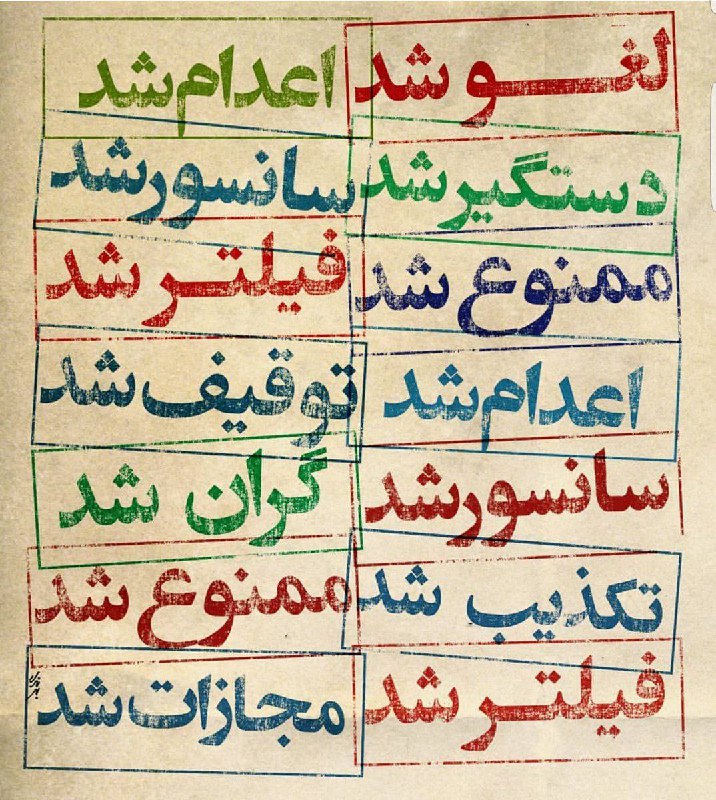 لغو شد
اعدام شد
دستگیر شد
سانسور شد
ممنوع شد
فیلتر شد
اعدام شد
توقیف شد
سانسور شد
گران شد
تکذیب شد
ممنوع شد
فیلتر شد
مجازات شد